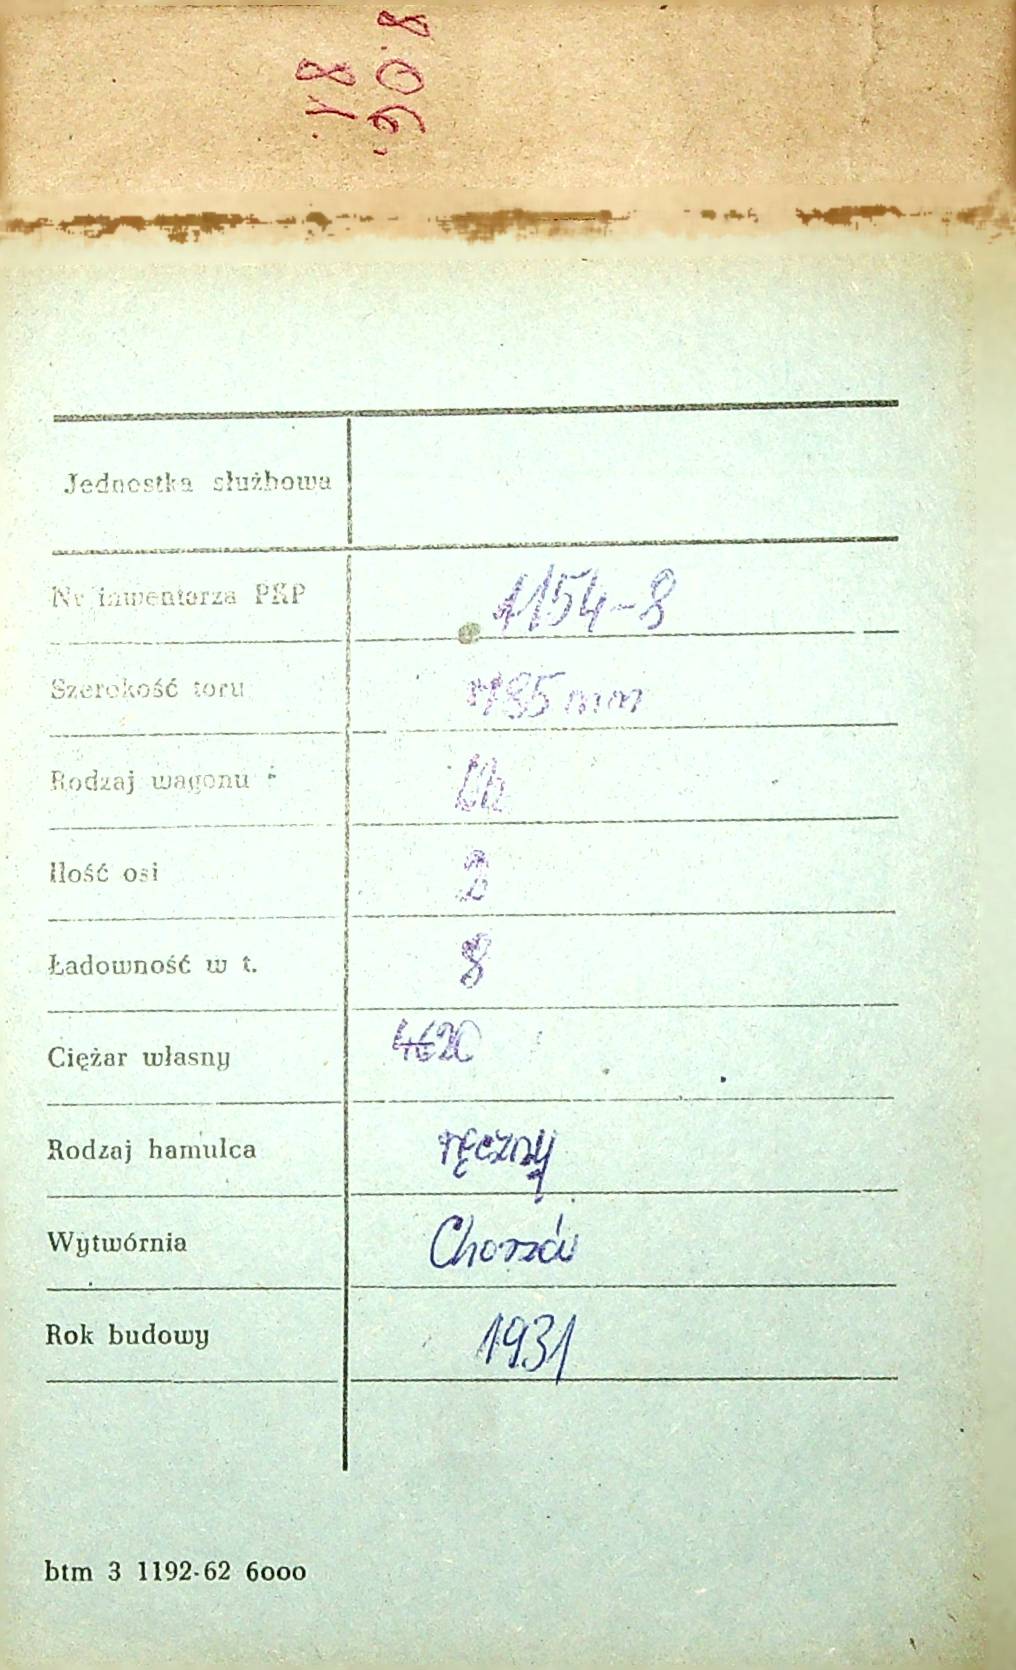 Jednostka służbowa
Nr inwentarza PKP 1154-8
Szerokość toru 785 mm
Rodzaj wagonu
Ilość osi 2
Ładowność w t. 8
Ciężar własny 4620
Rodzaj hamulca ręczny
Wytwórnia Chorzów
Rok budowy 1931
btm 3 1192-62 6000